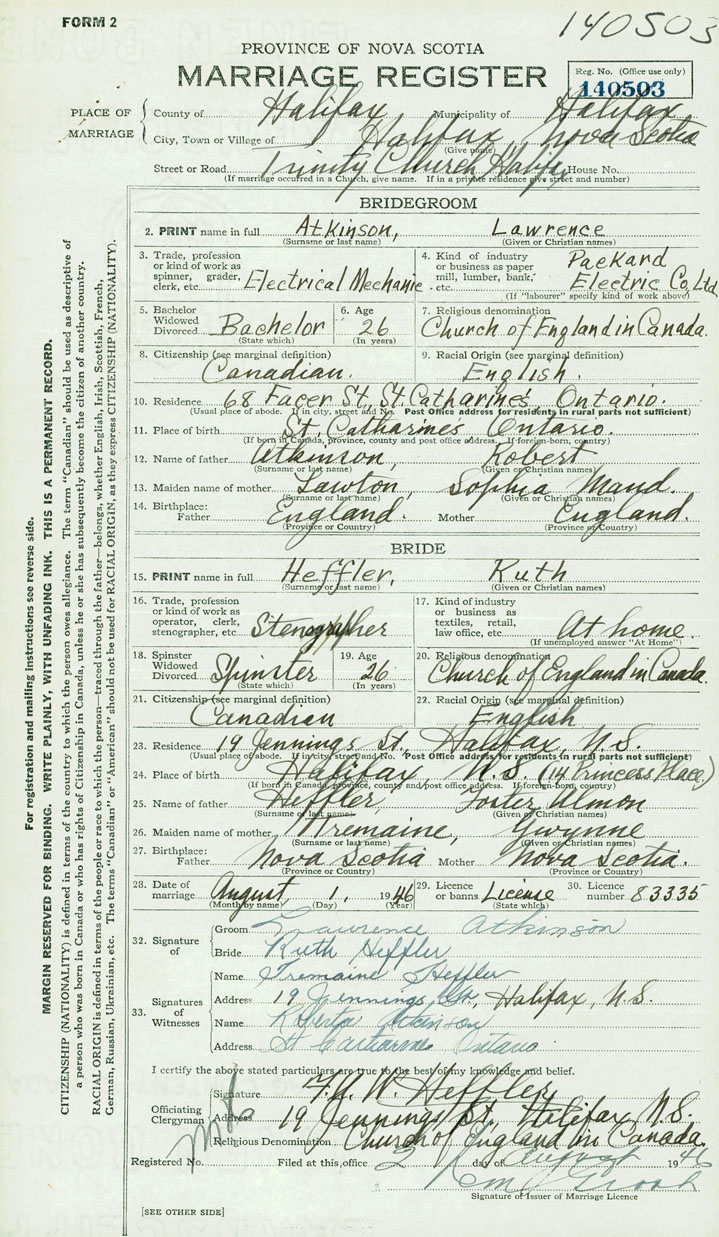 FORM 2
140503
PROVINCE OF NOVA SCOTIA
MARRIAGE REGISTER
Reg. No. (Office use only)
140503
PLACE OF MARRIAGE
County of Halifax Municipality of Halifax
City, Town or Village of Halifax Nova Scotia
(Give name)
Street or Road Trinity Church Halifax House No.
(If marriage occurred in a Church, give name. If in a private residence give street and number)
BRIDEGROOM
2. PRINT name in full Atkinson, Lawrence
(Surname or last name) (Given or Christian names)
3. Trade, profession or kind of work as spinner, grader, clerk, etc. Electrical Mechanic
4. Kind of industry or business as paper mill, lumber, bank, etc. Packard Electric Co, Ltd
(If "labourer" specify kind of work above)
5. Bachelor Widowed Divorced Bachelor
(State which)
6. Age 26
(In years)
7. Religious denomination
Church of England in Canada.
8. Citizenship (see marginal definition)
Canadian.
9. Racial Origin (see marginal definition)
English.
10. Residence 68 Facer St. St. Catharines Ontario.
(Usual place of abode. If in city, street and No. Post Office address for residents in rural parts not sufficient)
11. Place of birth St. Catharines Ontario.
(If born in Canada, province, county and post office address. If foreign-born, country)
12. Name of father Atkinson, Robert
(Surname or last name) (Given or Christian names)
13. Maiden name of mother Lawton, Sophia Maud.
(Surname or last name) (Given or Christian names)
14. Birthplace: Father England. Mother England.
(Province or Country) (Province or Country)
BRIDE
15. PRINT name in full Heffler, Ruth
(Surname or last name) (Given or Christian names)
16. Trade, profession or kind of work as operator, clerk, stenographer, etc. Stenographer
17. Kind of industry or business as textiles, retail, law office, etc. At home.
(If unemployed answer "At Home")
18. Spinster Widowed Divorced Spinster
(State which)
19. Age 26
(In years)
20. Religious denomination
Church of England in Canada.
21. Citizenship (see marginal definition)
Canadian
22. Racial Origin (see marginal definition)
English
23. Residence 19 Jennings St., Halifax, N.S.
(Usual place of abode. If in city, street and No. Post Office address for residents in rural parts not sufficient)
24. Place of birth Halifax, N.S. (14 Princess Place)
(If born in Canada, province, county and post office address. If foreign-born, country)
25. Name of father Heffler, Foster Almon
(Surname or last name) (Given or Christian names)
26. Maiden name of mother Tremaine, Gwynne
(Surname or last name) (Given or Christian names)
27. Birthplace: Father Nova Scotia Mother Nova Scotia.
(Province or Country) (Province or Country)
28. Date of marriage August 1, 1946
(Month by name) (Day) (Year)
29. Licence or banns License
(State which)
30. Licence number 83335
32. Signature of
Groom Lawrence Atkinson
Bride Ruth Heffler
33. Signatures of Witnesses
Name Tremaine Heffler
Address 19 Jennings St., Halifax, N.S.
Name Roberta Atkinson
Address St Catharines Ontario
I certify the above stated particulars are true to the best of my knowledge and belief.
Officiating Clergyman
Signature F.A.W. Heffler
Address 19 Jennings St. Halifax, N.S.
Religious Denomination Church of England in Canada
Registered No. Filed at this office 2 day of August 1946
Signature of Issuer of Marriage Licence
[SEE OTHER SIDE]
For registration and mailing instructions see reverse side.
MARGIN RESERVED FOR BINDING. WRITE PLAINLY, WITH UNFADING INK. THIS IS A PERMANENT RECORD.
CITIZENSHIP (NATIONALITY) is defined in terms of the country to which the person owes allegiance. The term "Canadian" should be used as descriptive of
a person who was born in Canada or who has rights of Citizenship in Canada, unless he or she has subsequently become the citizen of another country.
RACIAL ORIGIN is defined in terms of the people or race to which the person—traced through the father—belongs, whether English, Irish, Scottish, French,
German, Russian, Ukrainian, etc. The terms "Canadian" or "American" should not be used for RACIAL ORIGIN, as they express CITIZENSHIP (NATIONALITY).